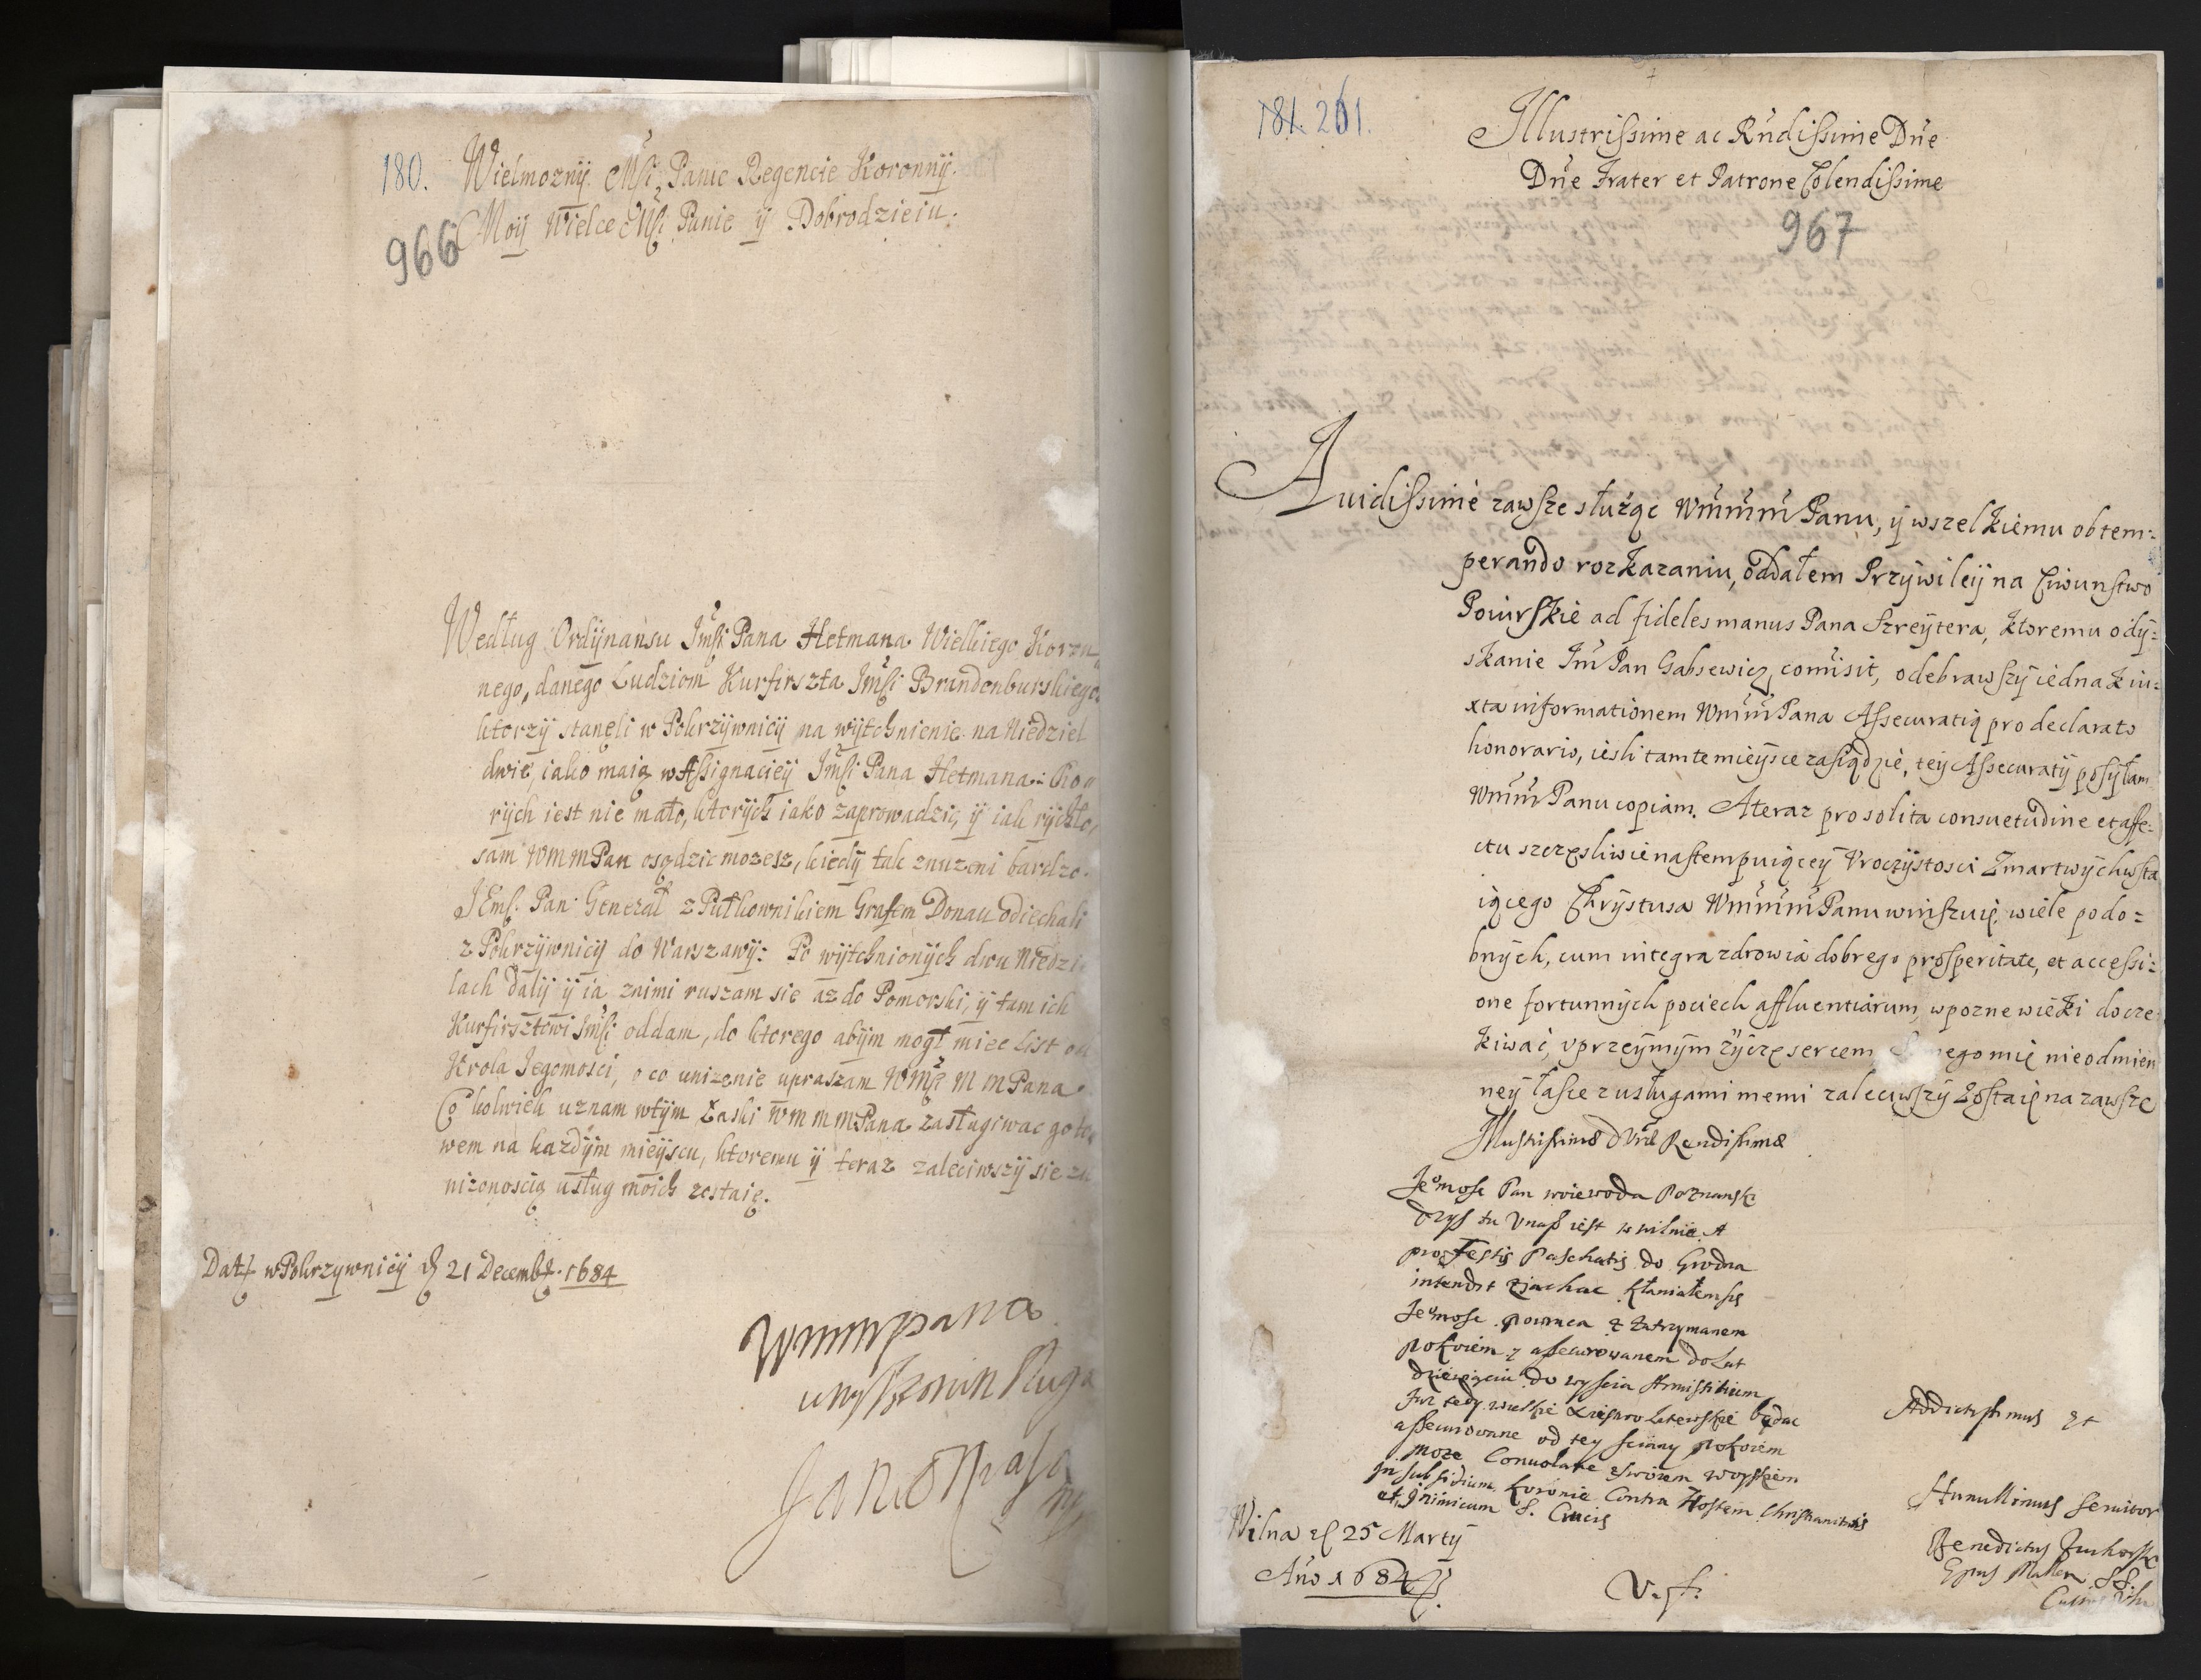 180.
Wielmoznÿ Msći Panie Regencie Koronnÿ.
966
Moÿ Wielce Msći Panie ÿ Dobrodzieiu.
Według Ordÿnansu Jmści Pana Hetmana Wielkiego Koron
nego, danego Ludziom Kurfirszta Jmści Brandenburskiego
ktorzÿ stanęli w Pokrzÿwnicÿ na wÿtchnienie na Niedziel
dwie, iako maią w Assignacieÿ Jmści Pana Hetmana: Cho
rÿch iest nie mało, ktorÿch iako zaprowadzic, ÿ iak rÿchło,
sam WMMPan osądzic mozesz, kiedÿ tak znuzeni bardzo.
JEmść Pan Generał z Pułkownikiem Grafem Donau odiechali
z Pokrzÿwnicÿ do Warszawÿ: Po wÿtchnionÿch dwu Niedzie
lach dalÿ ÿ ia znimi ruszam sie az do Pomorski, ÿ tam ich
Kurfirsztowi Jmści oddam, do ktorego abÿm mogł miec List od
Krola Jegomosci, o co unizenie upraszam WMści M mPana
Co kolwiek uznam wtÿm Łaski WmmmPana zasługiwac goto
wem na kazdÿm mieÿscu, ktoremu ÿ teraz zaleciwszÿ sie z u
nizonoscią usług moich zostaię.
Datt w Pokrzywnicÿ d 21 Decembr. 1684
Wmmmpana
181. 261.
Illustrissime ac Rndissime Dne
Dne Frater et Patrone Colendissime
967
Auidissime zawsze służąc WmmmPanu, ÿ wszelkiemu obtem:
perando rozkazaniu, oddałem Przÿwileÿ na Ciwunstwo
Poiurskie ad fideles manus Pana Szreÿtera, ktoremu odÿ:
skanie Jm Pan Gabsewicz comisit, odebrawszÿ iednak iu:
xta informationem WmmPana Assecuratią pro declarato
honorario, iesli tamte mieÿsce zasiądzie, teÿ Assecuratÿ posÿłam
WmmPanu copiam. A teraz pro solita consuetudine et affe:
ctu szczęsliwie nastempuiąceÿ Vroczÿstosci Zmartwÿchwsta
iącego Chrÿstusa WmmmPanu winszuię. wiele podo:
bnÿch, cum integra zdrowia dobrego prosperitate, et accessi:
one fortunnÿch pociech affluentiarum, w pozne wieki docze
kiwać, vprzeÿmÿm zÿczę sercem nego mię nieodmien
neÿ łasce z usługami memi zaleciwszÿ Zostaię na zawsze
Illustrissimæ dVræ Rendissimæ
Jeomosc Pan woiewoda Poznansk
dzys tu Vnas iest w wilnie. A
pro Festis Paschatis do Grodna
intendit ziachac Kłaniałemsię
Jeomosc Powraca z Zatrzymanem
pokoiem y assecurowanem do Lat
dziewięciu do wyscia Armistitium
Juz tedy wielkie Xięstwo Litewskie będąc
assecurowane od tey sciany pokoiem
moze Conuolare zswoiem woyskiem
in subsidium Koronie Contra Hostem Christianitatis
et Inimicum S. Crucis
Wilna d 25 Martÿ
Ano 1684
Addictissimus et
Humillimus seruitor
Benedictus